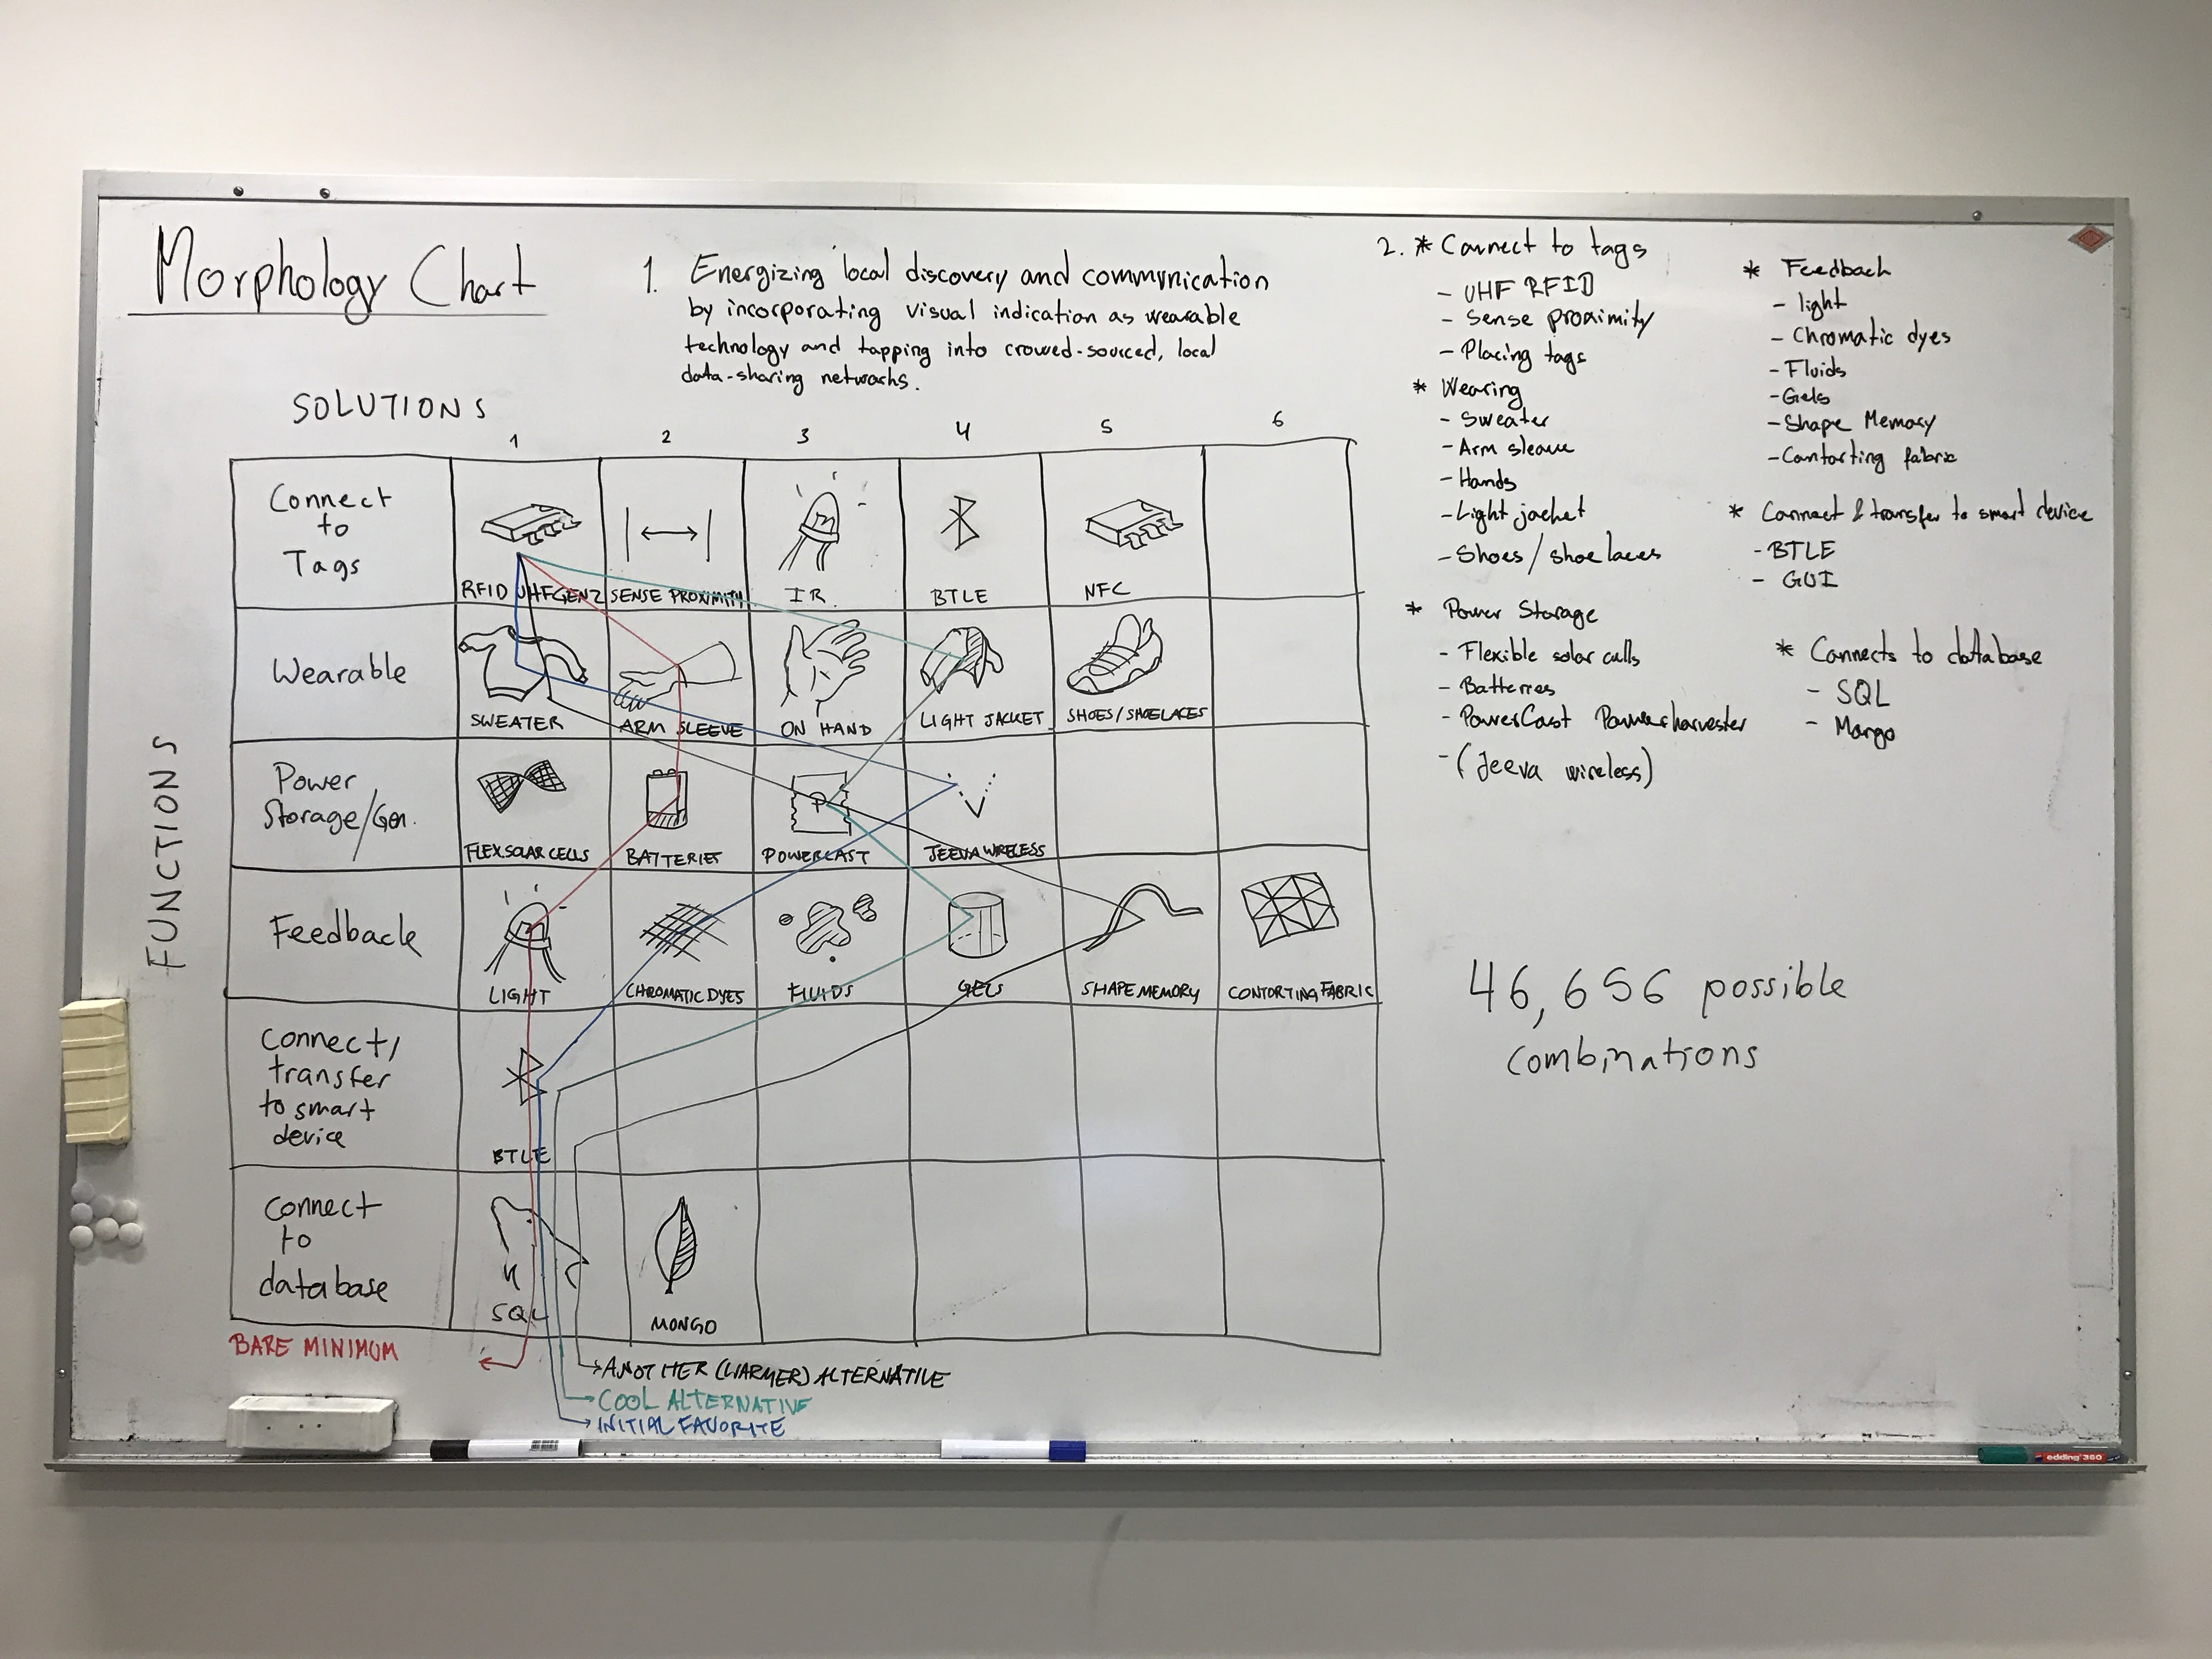 Morphology Chart
1. Energizing local discovery and communication
by incorporating visual indication as wearable
technology and tapping into crowed-sourced, local
data-sharing networks.
SOLUTIONS
1 2 3 4 5 6
FUNCTIONS
Connect
to
Tags
RFID UHFGEN2 SENSE PROXIMITY IR BTLE NFC
Wearable
SWEATER ARM SLEEVE ON HAND LIGHT JACKET SHOES/SHOELACES
Power
Storage/Gen.
P
FLEX.SOLAR CELLS BATTERIES POWERCAST JEEVA WIRELESS
Feedback
LIGHT CHROMATIC DYES FLUIDS GELS SHAPE MEMORY CONTORTING FABRIC
Connect/
transfer
to smart
device
BTLE
Connect
to
database
SQL MONGO
BARE MINIMUM
ANOTHER (WARMER) ALTERNATIVE
COOL ALTERNATIVE
INITIAL FAVORITE
2. * Connect to tags
- UHF RFID
- Sense proximity
- Placing tags
* Wearing
- Sweater
- Arm sleave
- Hands
- Light jacket
- Shoes/shoelaces
* Power Storage
- Flexible solar cells
- Batteries
- PowerCast Powerharvester
- (Jeeva wireless)
* Feedback
- light
- Chromatic dyes
- Fluids
- Gels
- Shape Memory
- Contorting fabric
* Connect & transfer to smart device
- BTLE
- GUI
* Connects to database
- SQL
- Mongo
46,656 possible
combinations
edding 360